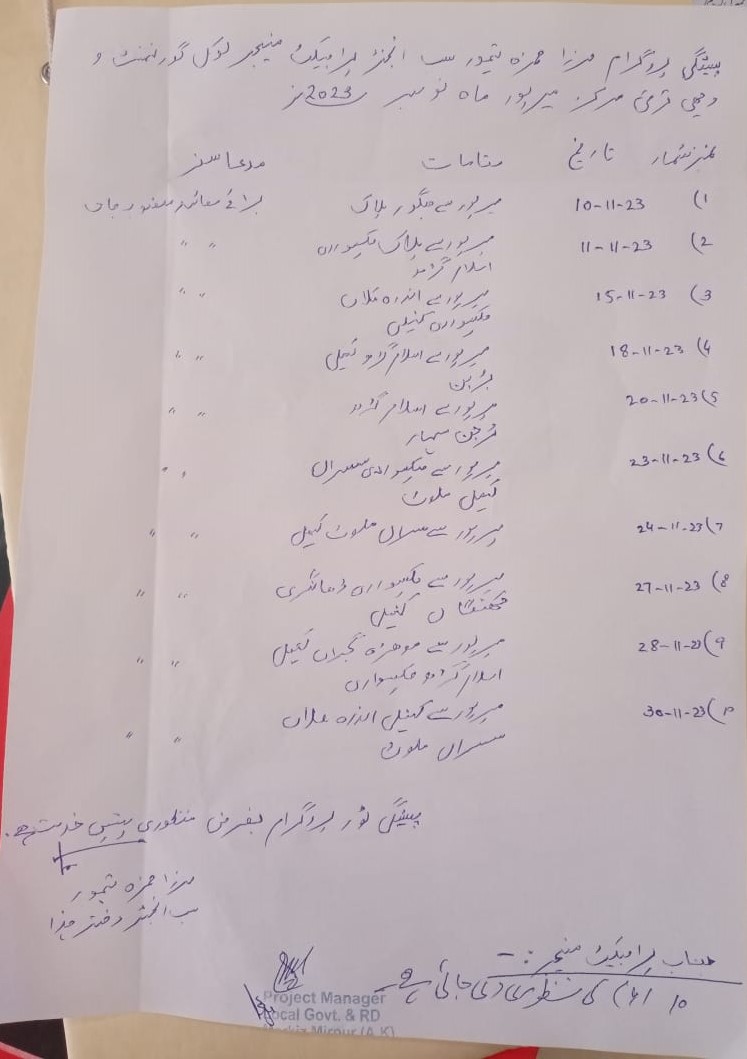 پیشگی پروگرام مرزا حمزہ تیمور سب انجنئر پراجیکٹ منیجر لوکل گورنمنٹ و
دیہی ترقی مرکز میرپور ماہ نومبر 2023ء
نمبر شمار تاریخ مقامات مدعا سفر
1) 10-11-23 میرپور سے جگور پلاک برائے معائنہ منصوبہ جات
2) 11-11-23 میرپور سے پلاک چکسواری 〃 〃
اسلام گڑھ
3) 15-11-23 میرپور سے اندرہ کلاں 〃 〃
چکسواری کنیلی
4) 18-11-23 میرپور سے اسلام گڑھ کنیلی 〃 〃
بڑبن
5) 20-11-23 میرپور سے اسلام گڑھ 〃 〃
6) 23-11-23 میرپور سے چکسواری سسرال 〃 〃
کنیلی ملوٹ
7) 24-11-23 میرپور سے سسرال ملوٹ کنیلی 〃 〃
8) 27-11-23 میرپور سے چکسواری ڈھانگری 〃 〃
کنیلی
9) 28-11-23 میرپور سے موہڑہ کنیلی 〃 〃
اسلام گڑھ چکسواری
10) 30-11-23 میرپور سے کنیلی اندرہ کلاں 〃 〃
سسرال ملوٹ
پیشگی ٹور پروگرام بغرض منظوری پیش خدمت ہے۔
مرزا حمزہ تیمور
سب انجنئر دفتر ہذا
جناب پراجیکٹ منیجر :-
کی منظوری دی جاتی ہے
Project Manager
Local Govt. & RD
Markiz Mirpur (A.K)